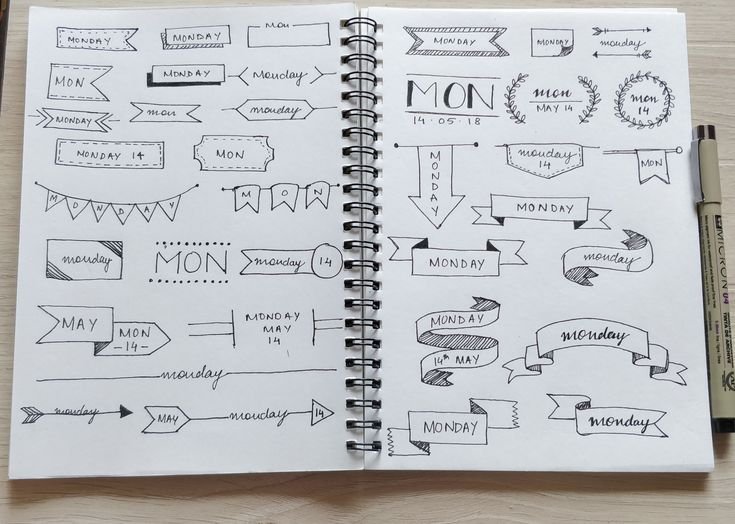 MONDAY
MONDAY
mon
MON
MONDAY
Monday
MONDAY
mon
monday
MONDAY 14
MON
MONDAY
MON
monday
MON
monday 14
MAY
MON
-14-
MONDAY
MAY
14
monday
monday
MAY
monday
14
MONDAY
MONDAY
monday
MON
14·05·18
mon
MAY 14
mon
14
MONDAY
monday
14
MON
MONDAY
MONDAY
monday
MONDAY
14th MAY
monday
MONDAY
monday
MICRON 04